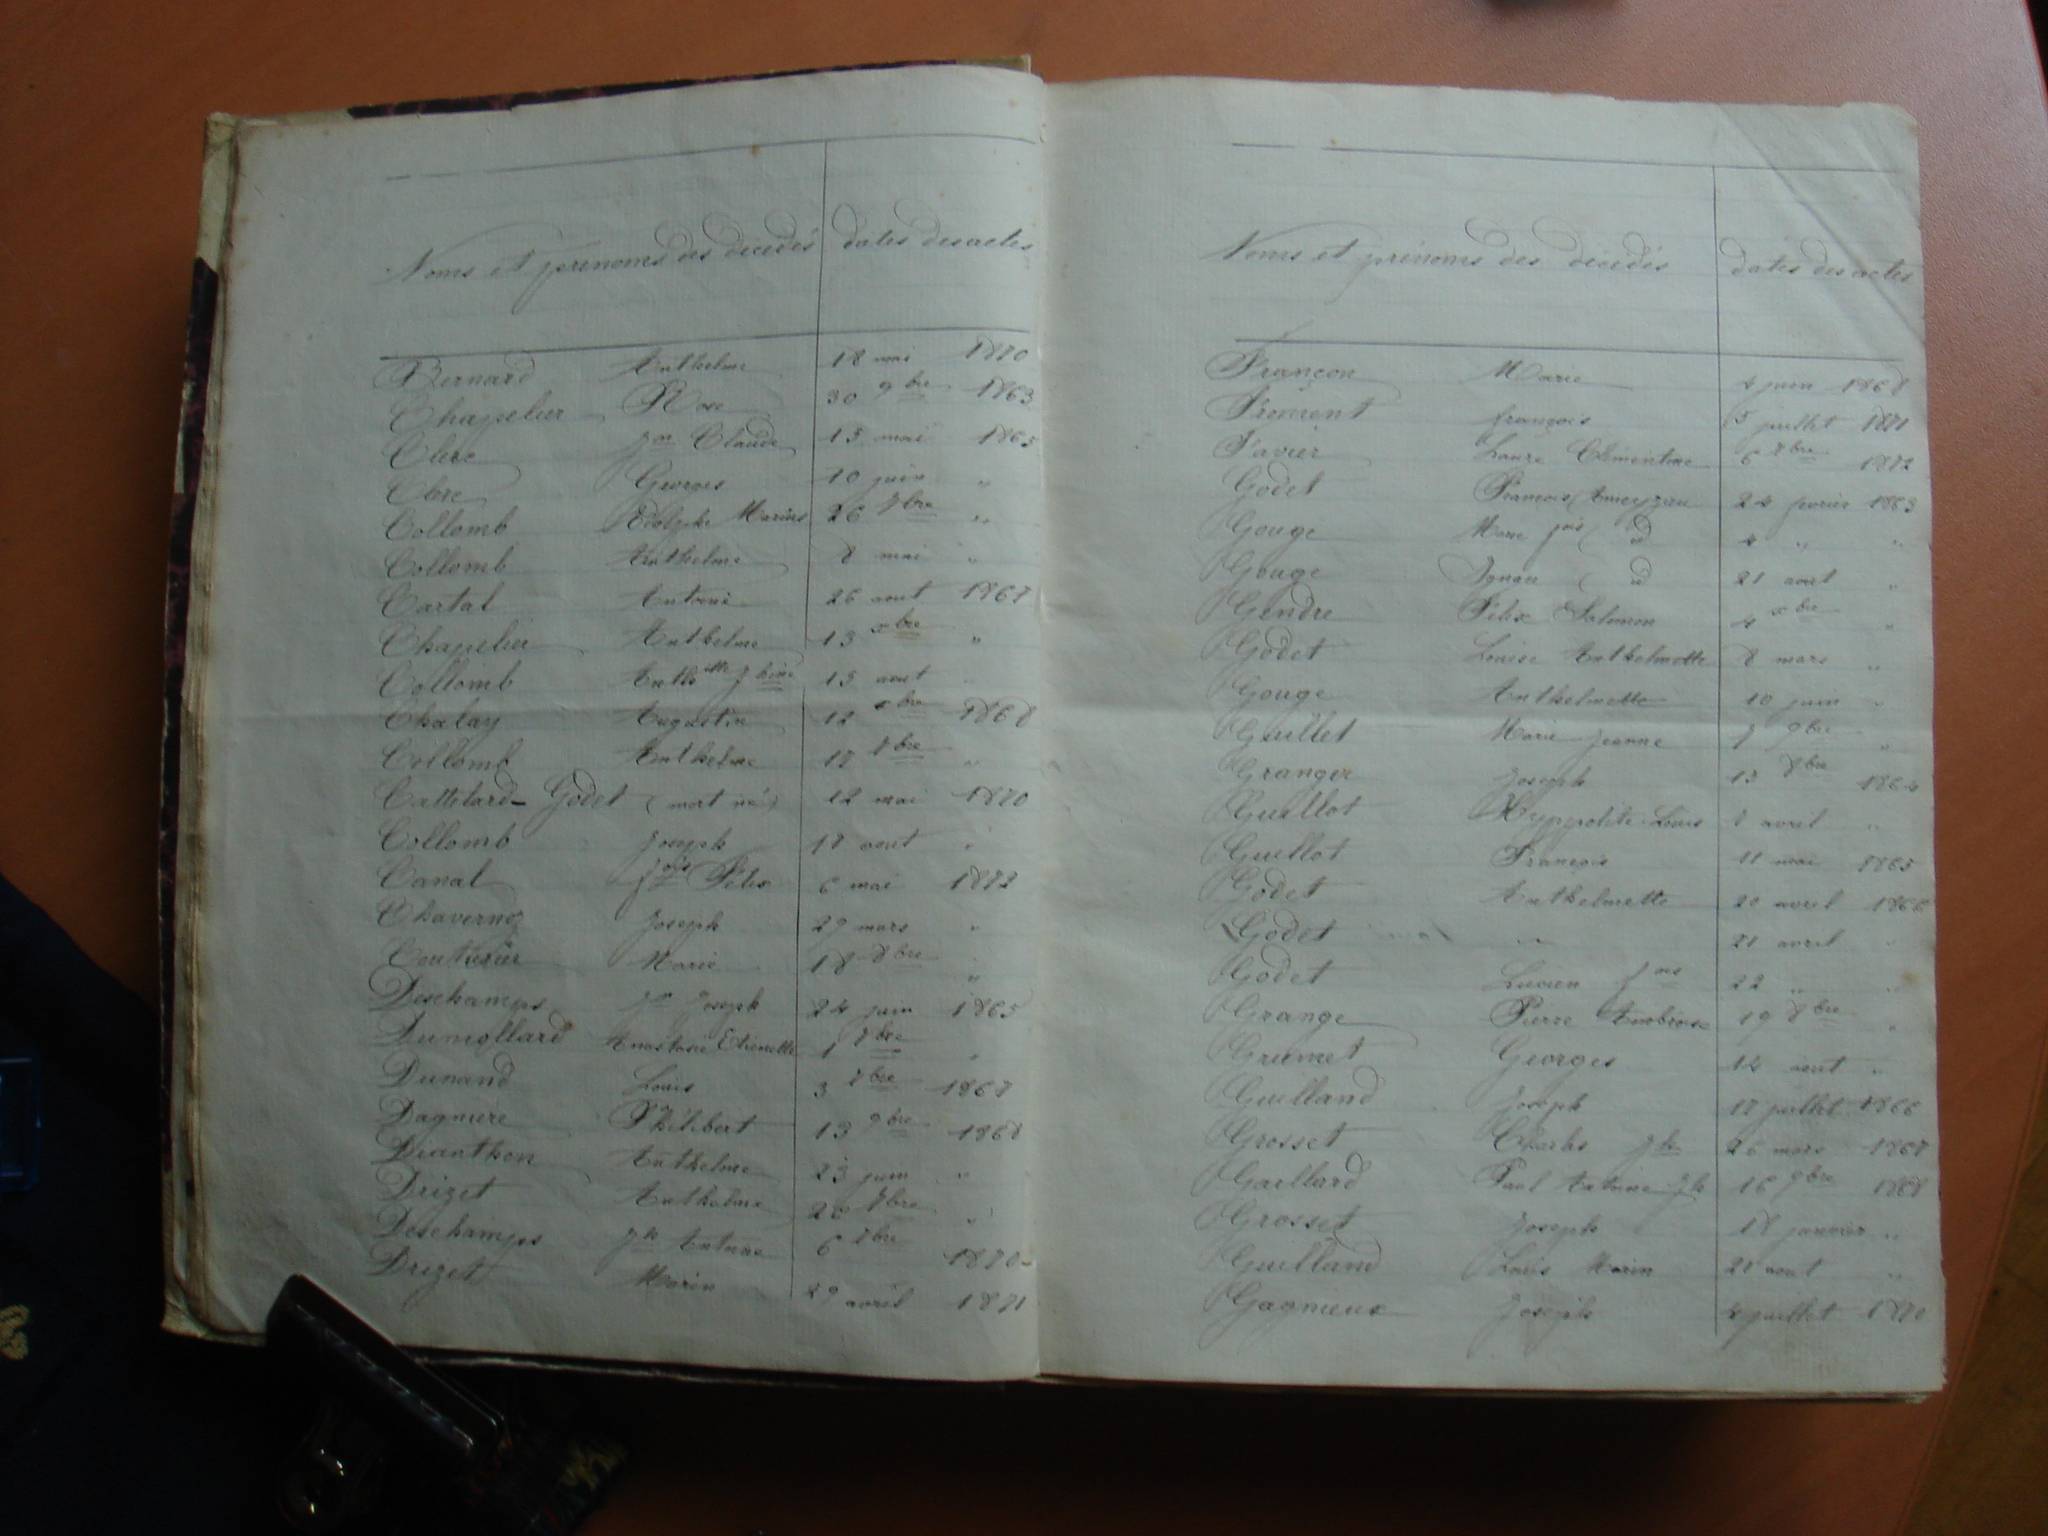 Noms et prénoms des décédés dates des actes
Bernard Anthelme 18 mai 1870
Chapelier Rose 30 9bre 1863
Clerc Jn Claude 15 mai 1865
Clerc Georges 10 juin "
Collomb Adolphe Marius 26 7bre "
Collomb Anthelme 8 mai "
Cartal Antoine 26 aout 1867
Chapelier Anthelme 13 xbre "
Collomb 15 aout "
Chalay Augustin 12 xbre 1868
Collomb Anthelme 17 7bre "
Cattelard - Godet (mort né) 12 mai 1870
Collomb Joseph 18 aout "
Canal Félix 6 mai 1872
Chavernoz Joseph 29 mars "
Couturier Marie 18 8bre "
Deschamps Jn Joseph 24 juin 1865
Dumollard Anastasie Etiennette 1 7bre "
Dunand Louis 3 7bre 1867
Dagniere Philibert 13 9bre 1868
Dianthon Anthelme 23 juin "
Drizet Anthelme 20 7bre "
Deschamps Jh Antoine 6 7bre 1870
Drizet Marin 29 avril 1871
Noms et prénoms des décédés dates des actes
Françon Marie 4 juin 1868
Froment françois 5 juillet 1871
Favier Laure Clémentine 6 7bre 1872
Godet François 24 fevrier 1863
Gouge Marie 4 " "
Gouge 21 aout "
Gendre Félix Salomon 4 xbre "
Godet Louise Anthelmette 8 mars "
Gouge Anthelmette 10 juin "
Guillet Marie Jeanne 7 9bre "
Granger Joseph 13 8bre 1864
Guillot Hyppolite Louis 8 avril "
Guillot François 11 mai 1865
Godet Anthelmette 20 avril 1866
Godet 21 avril "
Godet Lucien 22 " "
Grange Pierre Ambroise 19 8bre "
Grumet Georges 12 aout "
Guilland Joseph 17 juillet 1866
Grosset Charles Jh 26 mars 1867
Gaillard Paul Antoine Jh 16 9bre 1868
Grosset Joseph 18 janvier "
Guilland Louis Marin 21 aout "
Gagnieux Joseph 4 juillet 1870